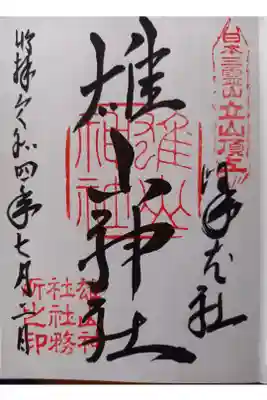 日本三霊山 立山頂上
峯本社
雄山神社
雄山
神社
拝 令和四年七月 日
雄山神
社社務
所之印